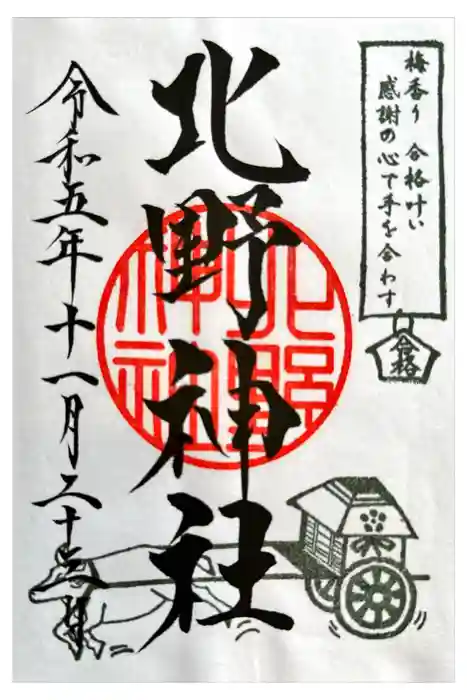 梅香り 合格叶い
感謝の心で手を合わす
合格
北野神社
北野神社
令和五年十一月二十三日